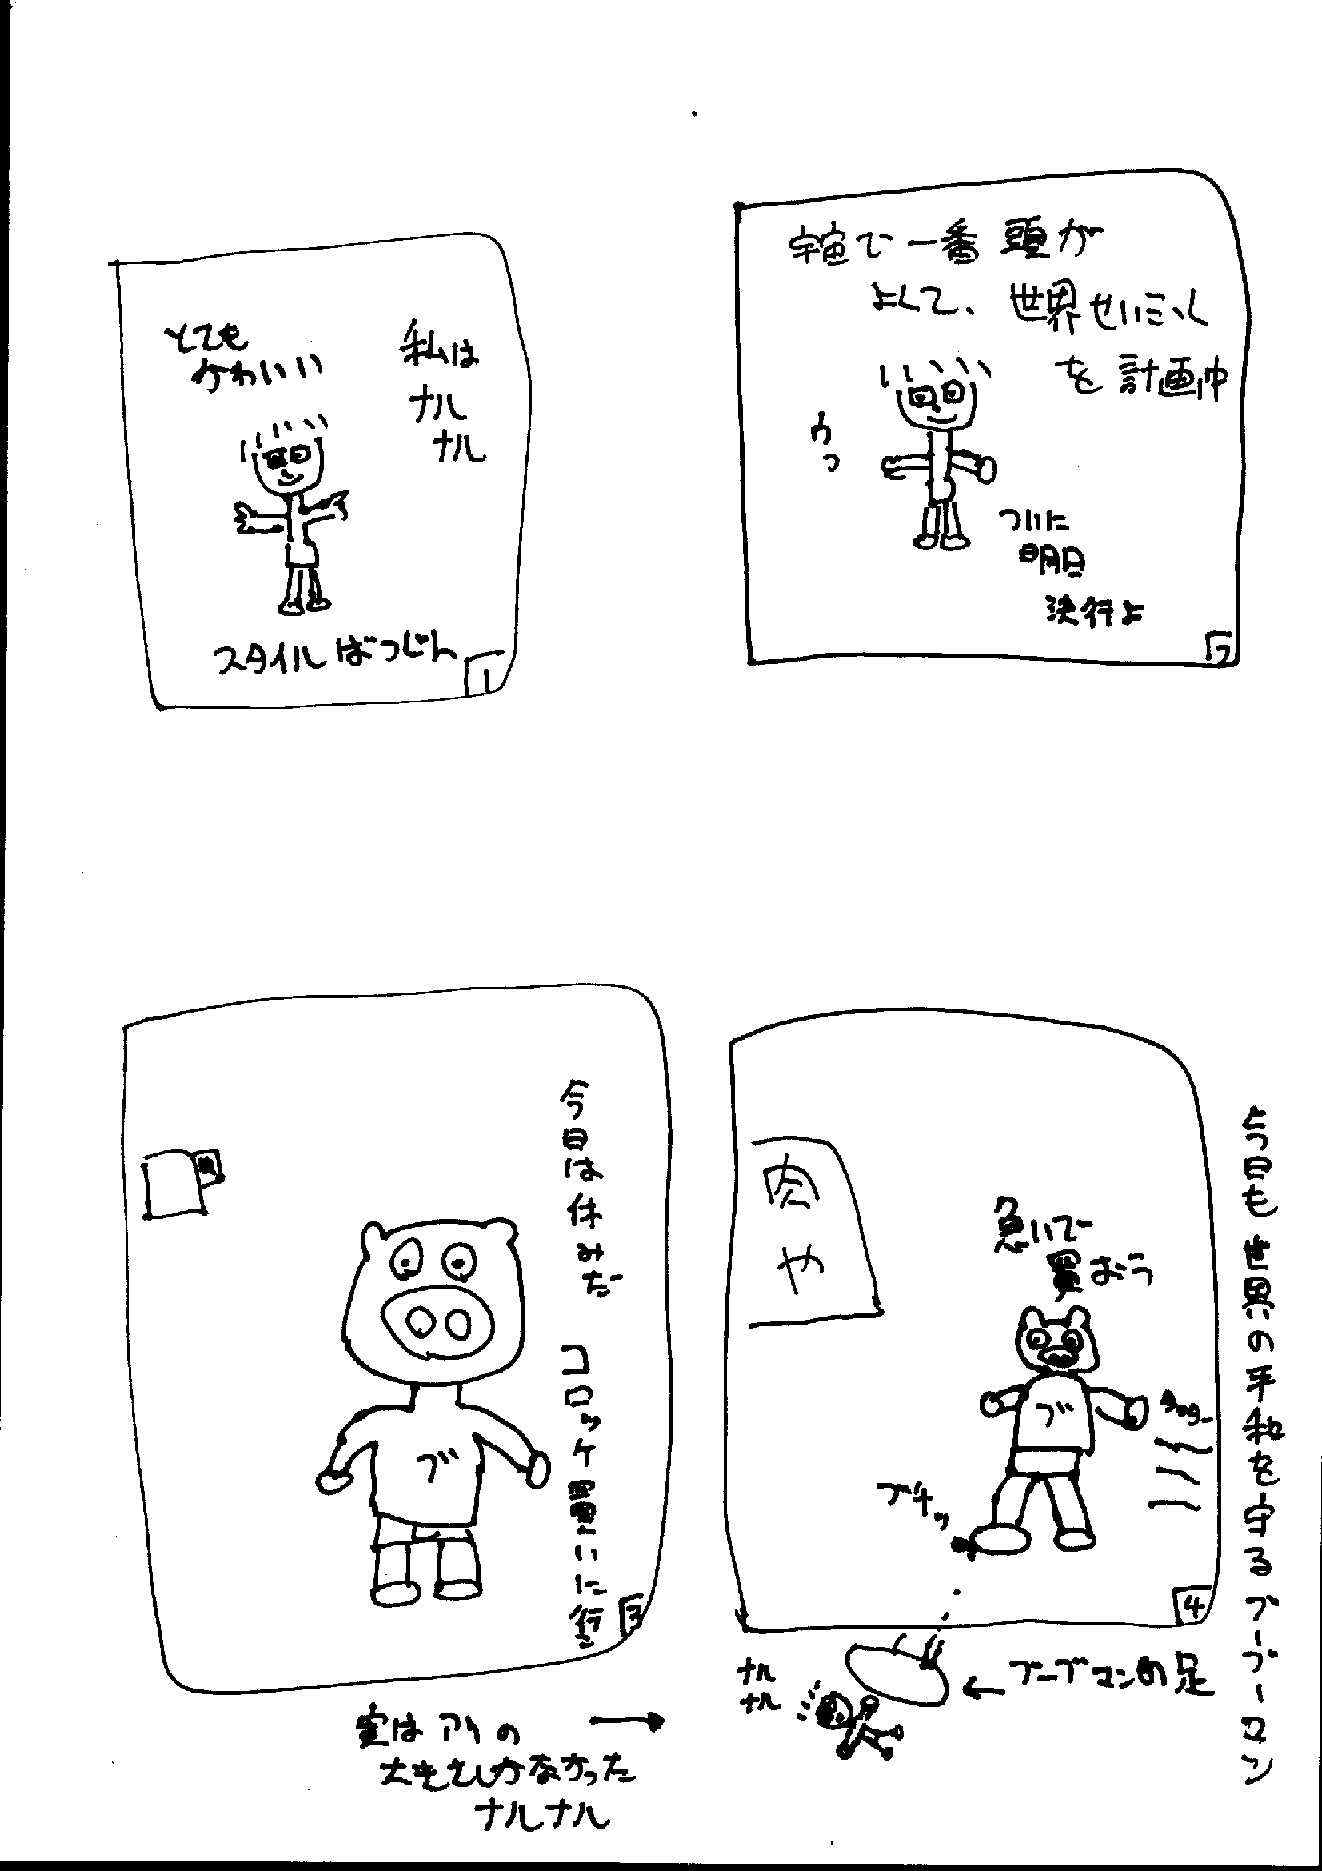 私は
ナル
ナル
とても
かわいい
スタイルばつじん
1
宇宙で一番頭が
よくて、世界せいふく
を計画中
ウっ
ついに
明日
決行よ
2
今日は休みだ コロッケ買いに行こう
3
肉や
急いで
買おう
ブ
ブ
タッタ
ブチッ
4
ナル
ナル
←ブーブマンの足
実はアリの
大きさしかなかった
ナルナル
今日も世界の平和を守るブーブーマン